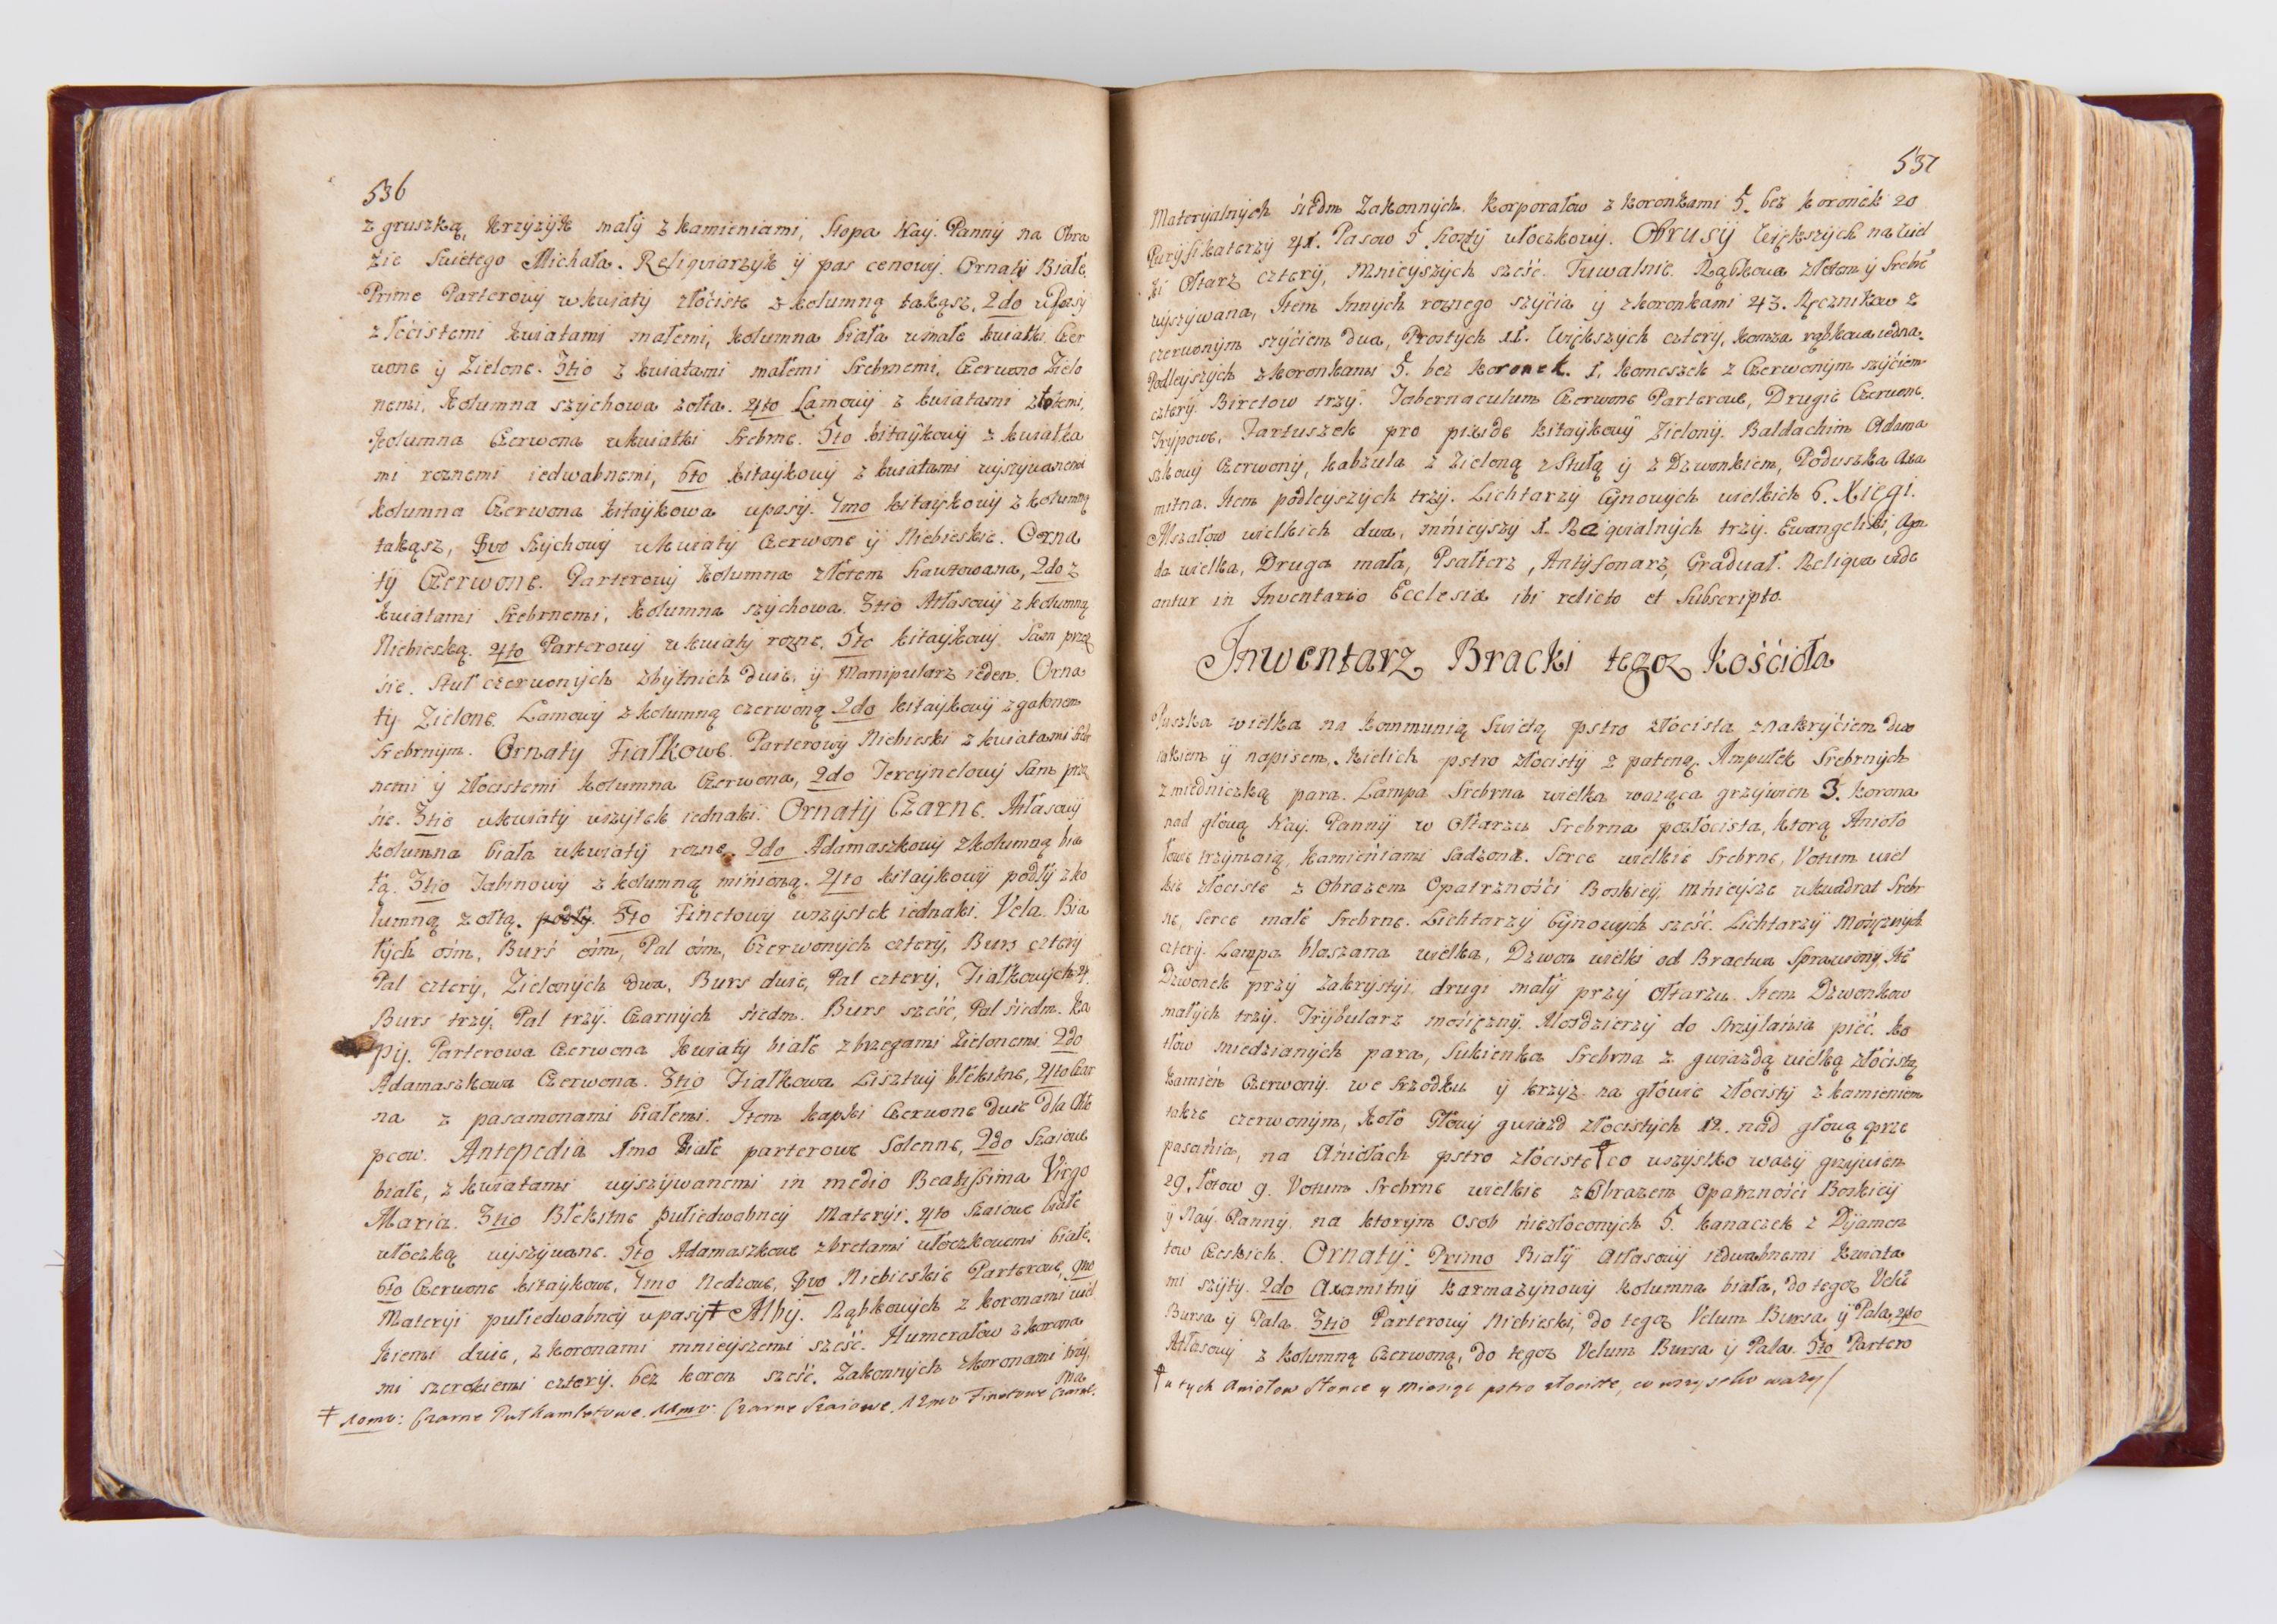 536
z gruszką, krzyżyk mały z kamieniami, Stopa Nay. Panny na Obra
zie Swietego Michała. Reliquiarzyk y pas cenowy. Ornaty Białe.
Primo Parterowy w kwiaty złociste z kolumną takąsz, 2do w Pasy
złocistemi kwiatami małemi, kolumna biała w małe kwiatki Czer
wone y Zielone. 3tio z kwiatami małemi Srebrnemi, Czerwono Zielo
nemi, kolumna szychowa zołta. 4to Lamowy z kwiatami złotemi,
kolumna Czerwona w kwiatki Srebrne. 5to kitaykowy z kwiatka
mi roznemi iedwabnemi, 6to kitaykowy z kwiatami wyszywanemi
kolumna Czerwona kitaykowa w pasy. 7mo kitaykowy z kolumną
takąsz, 8vo Szychowy w kwiaty Czerwone y Niebieskie. Orna
ty Czerwone. Parterowy kolumna złotem hawtowana, 2do z
kwiatami Srebrnemi, kolumna szychowa. 3tio Atłasowy z kolumną
Niebieską. 4to Parterowy w kwiaty rozne. 5to kitaykowy Sam przez
sie. Stuł czerwonych zbytnich dwie, y Manipularz ieden. Orna
ty Zielone Lamowy z kolumną czerwoną 2do kitaykowy z galonem
Srebrnym. Ornaty Fiałkowe. Parterowy Niebieski z kwiatami Srebr
nemi y złocistemi kolumna Czerwona, 2do Tercynelowy Sam prze
sie. 3tio w kwiaty wszytek iednaki. Ornaty Czarne. Atłasowy
kolumna biała w kwiaty rozne. 2do Adamaszkowy z kolumną bia
łą. 3tio Tabinowy z kolumną mienioną. 4to kitaykowy podły z ko
lumną zołtą. podły. 5to Finetowy wszystek iednaki. Vela. Bia
łych ośm, Burs ośm, Pal ośm, Czerwonych cztery, Burs cztery
Pal cztery, Zielonych dwa, Burs dwie, Pal cztery, Fiałkowych 4.
Burs trzy, Pal trzy. Czarnych siedm. Burs sześć, Pal siedm. Ka
py. Parterowa Czerwona kwiaty białe z brzegami Zielonemi. 2do
Adamaszkowa Czerwona. 3tio Fiałkowa Lisztwy błękitne, 4to Czar
na z pasamonami białemi. Item kapki Czerwone dwie dla Chło
pcow. Antepedia 1mo Białe parterowe Solenne, 2do Szaiowe
białe, z kwiatami wyszywanemi in medio Beatissima Virgo
Maria. 3tio Błękitne pułiedwabney Materyi. 4to Szaiowe białe
włóczką wyszywane. 5to Adamaszkowe z bretami włóczkowemi białe.
6to Czerwone kitaykowe, 7mo Nedzowe, 8vo Niebieskie Parterowe, 9no
Materyi pułiedwabney w pasy ‡ Alby. Rąbkowych z koronami wiel
kiemi dwie, z koronami mnieyszemi sześć. Humerałow z korona
mi szerokiemi cztery. bez koron sześć. Zakonnych z koronami trzy,
‡ 10mo: Czarne Pułkambletowe. 11mo: Czarne Szaiowe. 12mo Finetowe Czarne.
537
Materyalnych siedm Zakonnych. Korporałow z koronkami 5. bez koronek 20
Puryfikaterzy 41. Pasow 5 szosty włoczkowy. Obrusy większych na wiel
ki Ołtarz cztery, Mnieyszych sześć. Tuwalnie. Rąbkowa złotem y Srebrē
wyszywana, Item Innych roznego szycia y z koronkami 43. Ręcznikow z
czerwonym szyciem dwa, Prostych 11. Większych cztery, komza rąbkowa iedna.
Podleyszych z koronkami 5. bez koronek. 1. Komeszek z Czerwonym szyciem
cztery. Biretow trzy. Tabernaculum Czerwone Parterowe, Drugie Czerwone
Trypowe, Fartuszek pro pixide kitaykowy Zielony. Baldachim Adama
szkowy Czerwony, kabzula z Zieloną z Stułą y z Dzwonkiem, Poduszka Axa
mitna. Item podleyszych trzy. Lichtarzy Cynowych wielkich 6. Xięgi.
Mszałow wielkich dwa, mnieyszy 1. Reqwialnych trzy. Ewangeliki, Agen
da wielka, Druga mała, Psałterz, Antyfonarz, Graduał. Reliqua vide
antur in Inventario Ecclesiæ ibi relicto et Subscripto.
Inwentarz Bracki tegoz Kościoła
Puszka wielka na kommunią Swietą pstro złocista z nakryciem dwo
iakiem y napisem, kielich pstro złocisty z pateną. Ampułek Srebrnych
z miedniczką para. Lampa Srebrna wielka ważąca grzywien 3. Korona
nad głową Nay. Panny w Ołtarzu Srebrna pozłocista, ktorą Anioło
łowe trzymaią, kamieńiami sadzona. Serce wielkie Srebrne, Votum wiel
kie złociste z Obrazem Opatrzności Boskiey, mnieysze w kwadrat Srebr
ne, Serce małe Srebrne. Lichtarzy Cynowych sześć. Lichtarzy Mosięznych
cztery. Lampa blaszana wielka, Dzwon wielki od Bractwa Sprawiony, Itē
Dzwonek przy Zakrystyi drugi mały przy Ołtarzu. Item Dzwonkow
małych trzy. Trybularz mosięzny. Mozdzierzy do Strzylania pieć. Ko
tłow miedzianych para, Sukienka Srebrna z gwiazdą wielką złocistą
kamień Czerwony we Srzodku y krzyz na głowie złocisty z kamieniem
takze czerwonym, koło Głowy gwiazd złocistych 12. nad głową prze
pasania, na Aniołach pstro złociste † co wszystko wazy grzywien
29, łotow 9. Votum Srebrne wielkie z Obrazem Opatrzności Boskiey
y Nay. Panny. na ktorym Osob niezłoconych 5. kanaczek z Dyamen
tow Czeskich. Ornaty: Primo Biały Atłasowy iedwabnemi kwiata
mi szyty. 2do Axamitny karmazynowy kolumna biała, do tegoz Velū
Bursa y Pala. 3tio Parterowy Niebieski, do tegoz Velum Bursa y Pala, 4to
Atłasowy z kolumną Czerwoną, do tegoz Velum Bursa y Pala. 5to Partero
† u tych Aniołow Słonce y Miesiąc pstro złociste, co wszystko wazy /